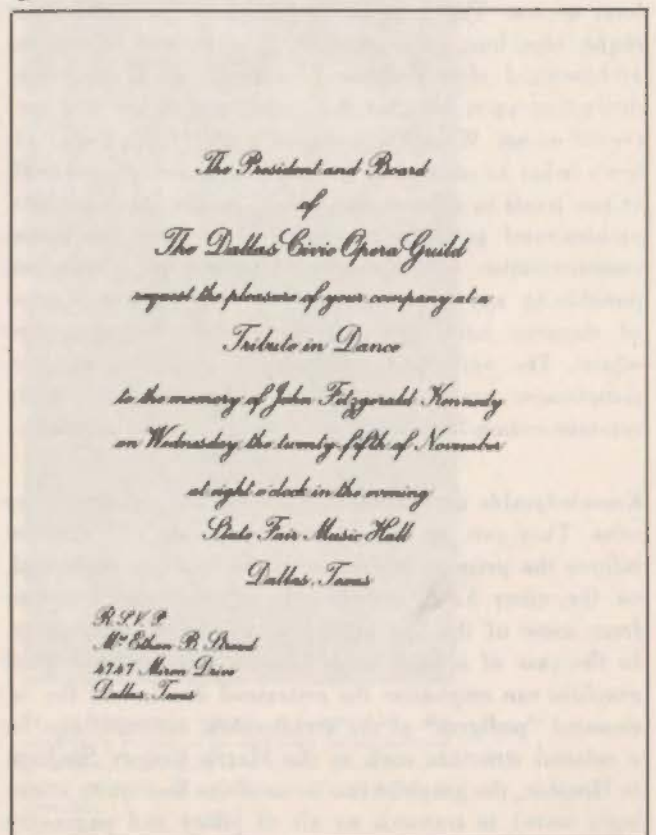 The President and Board
of
The Dallas Civic Opera Guild
request the pleasure of your company at a
Tribute in Dance
to the memory of John Fitzgerald Kennedy
on Wednesday the twenty-fifth of November
at eight o'clock in the evening
State Fair Music Hall
Dallas, Texas
R.S.V.P.
Mrs Ethan B. Stroud
4747 Miron Drive
Dallas, Texas